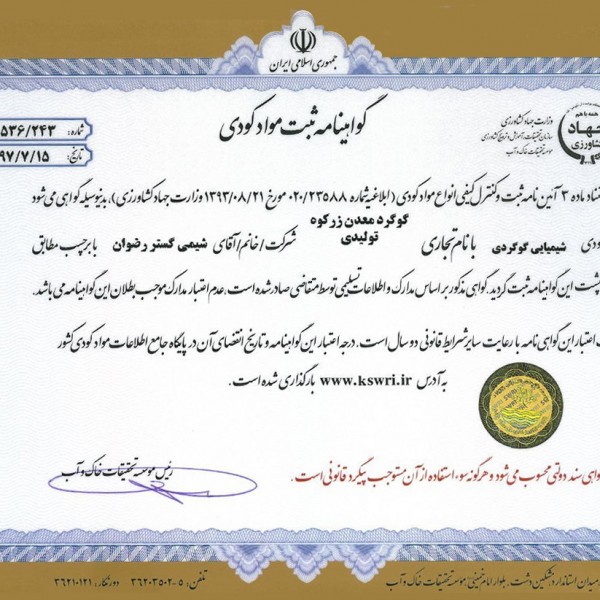 جمهوری اسلامی ایران
گواهینامه ثبت مواد کودی
وزارت جهاد کشاورزی
سازمان تحقیقات، آموزش و ترویج کشاورزی
موسسه تحقیقات خاک و آب
جهاد
کشاورزی
شماره: 536/243
تاریخ: 97/7/15
ماده ۳ آئین نامه ثبت و کنترل کیفی انواع مواد کودی (ابلاغیه شماره ۰۲۰/۲۳۵۸۸ مورخ ۱۳۹۳/۰۸/۲۱ وزارت جهاد کشاورزی)، بدینوسیله گواهی می شود
شیمیایی گوگردی با نام تجاری گوگرد معدن زرکوه تولیدی شرکت/خانم/آقای شیمی گستر رضوان با برچسب مطابق
پشت این گواهینامه ثبت گردید. گواهی مذکور بر اساس مدارک و اطلاعات تسلیمی توسط متقاضی صادر شده است، عدم اعتبار مدارک موجب بطلان این گواهینامه می باشد.
اعتبار این گواهی نامه با رعایت سایر شرایط قانونی دو سال است. درجه اعتبار این گواهینامه و تاریخ انقضای آن در پایگاه جامع اطلاعات مواد کودی کشور
به آدرس www.kswri.ir بارگذاری شده است.
سند دولتی محسوب می شود و هرگونه سوء استفاده از آن مستوجب پیگرد قانونی است.
رئیس موسسه تحقیقات خاک و آب
میدان استاندارد، مشکین دشت، بلوار امام خمینی، موسسه تحقیقات خاک و آب تلفن: ۵-۳۶۲۰۳۵۰۲ دورنگار: ۳۶۲۱۰۱۲۱